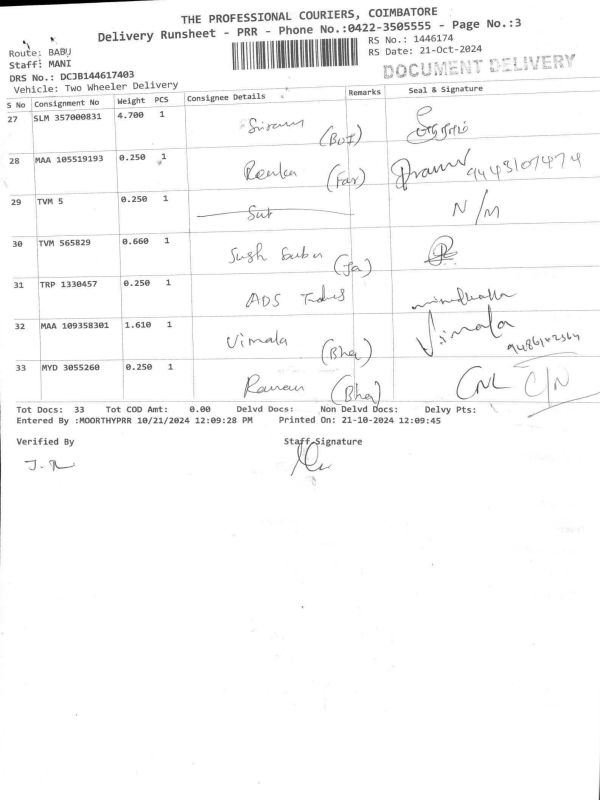 THE PROFESSIONAL COURIERS, COIMBATORE
Delivery Runsheet - PRR - Phone No.:0422-3505555 - Page No.:3
Route: BABU
Staff: MANI
DRS No.: DCJB144617403
Vehicle: Two Wheeler Delivery
RS No.: 1446174
RS Date: 21-Oct-2024
DOCUMENT DELIVERY
S No Consignment No Weight PCS Consignee Details Remarks Seal & Signature
27 SLM 357000831 4.700 1 Sriram
28 MAA 105519193 0.250 1 Renka (Far) 9443107474
29 TVM 5 0.250 1 N/M
30 TVM 565829 0.660 1 (Ja)
31 TRP 1330457 0.250 1 ADS
32 MAA 109358301 1.610 1 Vimala (Bha) Vimala
33 MYD 3055260 0.250 1 Raman (Bha) C/N
Tot Docs: 33 Tot COD Amt: 0.00 Delvd Docs: Non Delvd Docs: Delvy Pts:
Entered By :MOORTHYPRR 10/21/2024 12:09:28 PM Printed On: 21-10-2024 12:09:45
Verified By Staff Signature